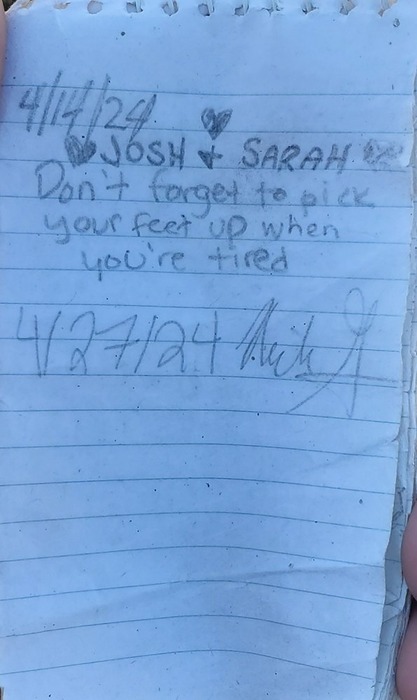 4/14/24
JOSH + SARAH
Don't forget to pick
your feet up when
you're tired
4/27/24